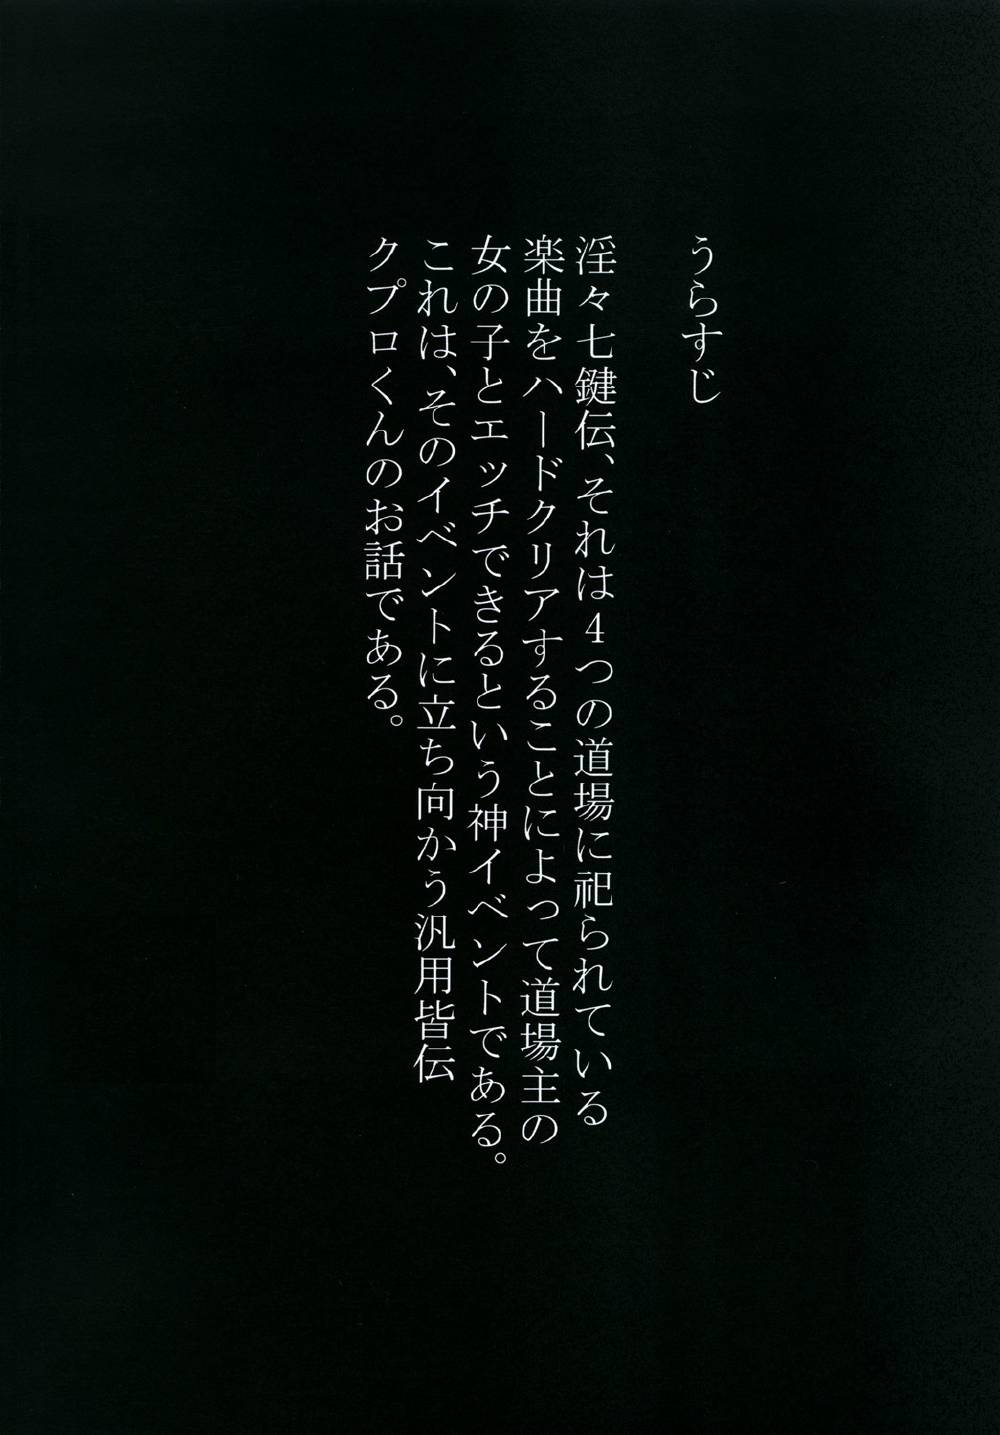 うらすじ
淫々七鍵伝、それは４つの道場に祀られている
楽曲をハードクリアすることによって道場主の
女の子とエッチできるという神イベントである。
これは、そのイベントに立ち向かう汎用皆伝
クプロくんのお話である。